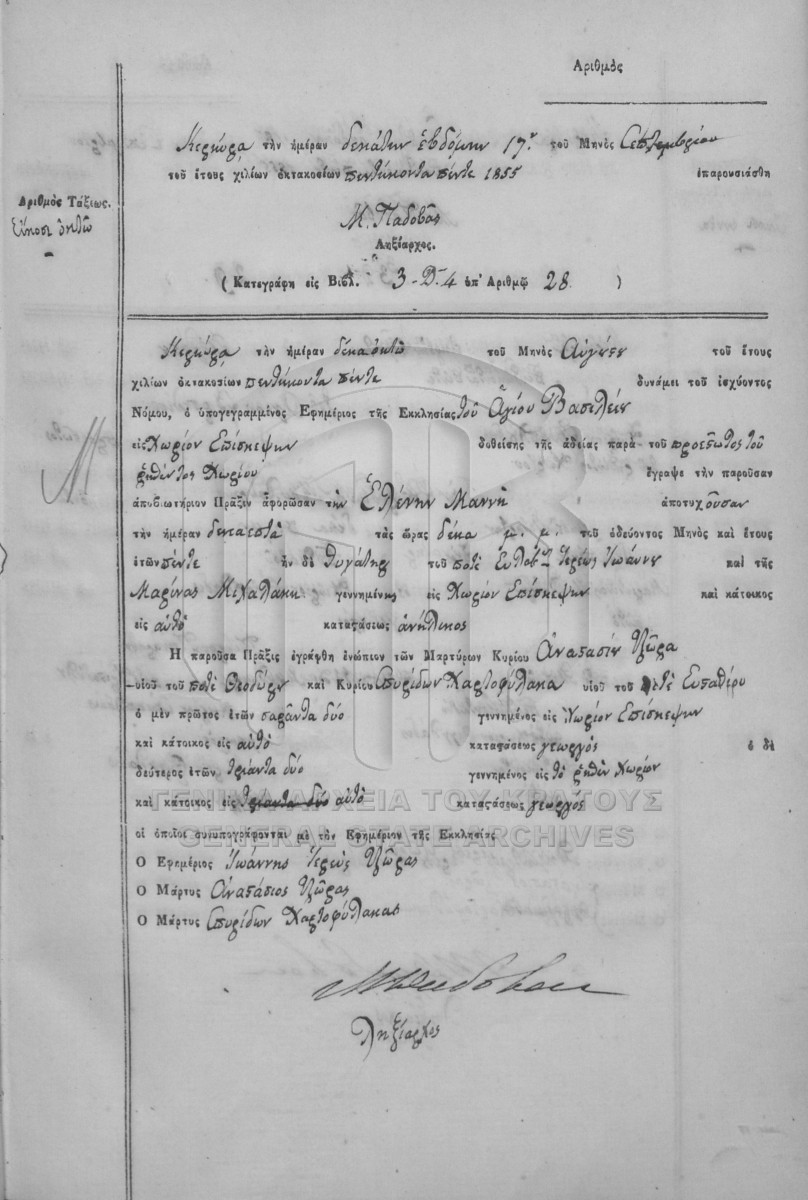 Ἀριθμὸς
Κερκύρᾳ τὴν ἡμέραν δεκάτην ἑβδόμην 17ην τοῦ Μηνὸς Σεπτεμβρίου
τοῦ ἔτους χιλίων ὀκτακοσίων πεντήκοντα πέντε 1855 ἐπαρουσιάσθη
Ἀριθμὸς Τάξεως.
Εἴκοσι ὀκτὼ
Μ. Παδοβᾶς
Ληξίαρχος.
( Κατεγράφη εἰς Βιβλ. 3-D-4 ὑπ' Ἀριθμῷ 28 )
Κερκύρᾳ τὴν ἡμέραν δέκα ὀκτὼ τοῦ Μηνὸς Αὐγούστου τοῦ ἔτους
χιλίων ὀκτακοσίων πεντήκοντα πέντε δυνάμει τοῦ ἰσχύοντος
Νόμου, ὁ ὑπογεγραμμένος Ἐφημέριος τῆς Ἐκκλησίας τοῦ Ἁγίου Βασιλείου
εἰς Χωρίον Ἐπίσκεψην δοθείσης τῆς ἀδείας παρὰ τοῦ προεστῶτος τοῦ
ῥηθέντος Χωρίου ἔγραψε τὴν παροῦσαν
ἀποβιωτήριον Πρᾶξιν ἀφορῶσαν τὴν Ἑλένην Μαννῆ ἀποτυχοῦσαν
τὴν ἡμέραν δεκαεπτὰ τὰς ὥρας δέκα μ. μ. τοῦ ὁδεύοντος Μηνὸς καὶ ἔτους
ἐτῶν πέντε ἦν δὲ θυγάτηρ τοῦ ποτὲ Εὐλαβ. Ἱερέως Ἰωάννου καὶ τῆς
Μαρίνας Μιχαλάκη γεννημένης εἰς Χωρίον Ἐπίσκεψην καὶ κάτοικος
εἰς αὐτὸ καταστάσεως ἀνήλικος
Ἡ παροῦσα Πρᾶξις ἐγράφθη ἐνώπιον τῶν Μαρτύρων Κυρίου Ἀναστασίου Τζῶρα
υἱοῦ τοῦ ποτὲ Θεοδώρου καὶ Κυρίου Σπυρίδων Χαρτοφύλακα υἱοῦ τοῦ ποτὲ Ευσταθίου
ὁ μὲν πρῶτος ἐτῶν σαράντα δύο γεννημένος εἰς Χωρίον Ἐπίσκεψην
καὶ κάτοικος εἰς αὐτὸ καταστάσεως γεωργὸς ὁ δὲ
δεύτερος ἐτῶν τριάντα δύο γεννημένος εἰς τὸ ῥηθὲν Χωρίον
καὶ κάτοικος εἰς τριάντα δύο αὐτὸ καταστάσεως γεωργὸς
οἱ ὁποῖοι συνυπογράφονται μὲ τὸν Ἐφημέριον τῆς Ἐκκλησίας
Ὁ Ἐφημέριος Ἰωάννης Ἱερεὺς Τζῶρας
Ὁ Μάρτυς Ἀναστάσιος Τζῶρας
Ὁ Μάρτυς Σπυρίδων Χαρτοφύλακας
Ληξίαρχος
ΓΕΝΙΚΑ ΑΡΧΕΙΑ ΤΟΥ ΚΡΑΤΟΥΣ
GENERAL STATE ARCHIVES